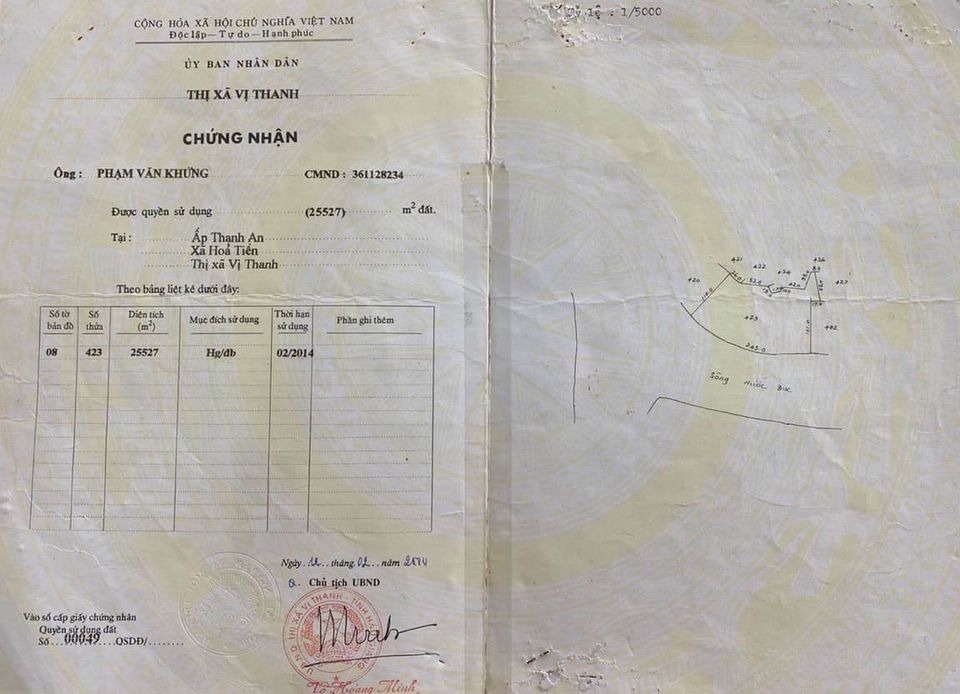 CỘNG HÒA XÃ HỘI CHỦ NGHĨA VIỆT NAM
Độc lập — Tự do — Hạnh phúc
ỦY BAN NHÂN DÂN
THỊ XÃ VỊ THANH
CHỨNG NHẬN
Ông : PHẠM VĂN KHỨNG CMND : 361128234
Được quyền sử dụng (25527) m² đất.
Tại : Ấp Thạnh An
Xã Hoả Tiến
Thị xã Vị Thanh
Theo bảng liệt kê dưới đây:
Số tờ bản đồ Số thửa Diện tích (m²) Mục đích sử dụng Thời hạn sử dụng Phần ghi thêm
08 423 25527 Hg/đb 02/2014
Ngày 12 tháng 02 năm 2004
Q. Chủ tịch UBND
Vào sổ cấp giấy chứng nhận
Quyền sử dụng đất
Số 00049 QSDĐ/
Võ Hoàng Minh
Tỷ lệ : 1/5000
421
422
424
426
420
427
423
402
245.0
Sông nước Đục